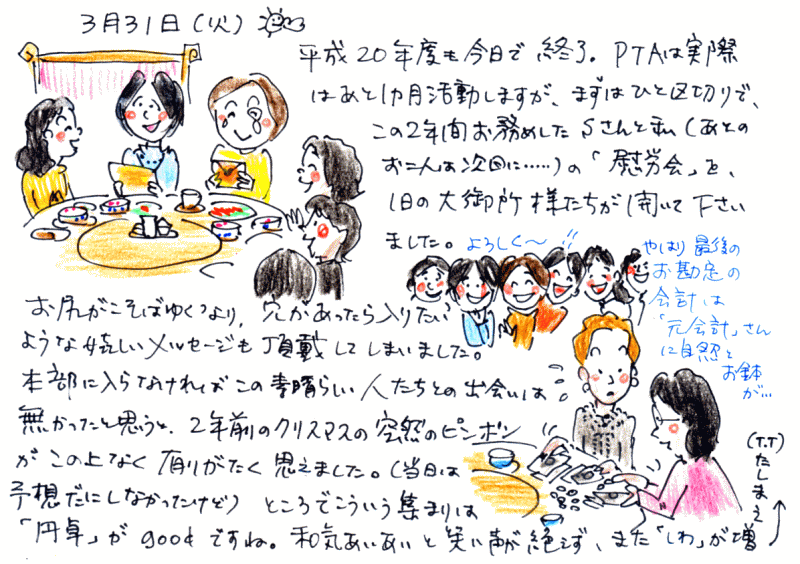 3月31日(火)
平成20年度も今日で終了。PTAは実際
はあと1カ月活動しますが、まずはひと区切りで、
この2年間お務めしたSさんと私(あとの
お二人は次回に……)の「慰労会」を、
旧の大御所様たちが開いて下さい
ました。
よろしく〜
やはり最後の
お勘定の
会計は
「元会計」さん
に自然と
お鉢
が…
お尻がこそばゆくつより、穴があったら入りたい
ような嬉しいメッセージも頂戴してしまいました。
本部に入らなければこの素晴らしい人たちとの出会いは
無かったと思うと、2年前のクリスマスの突然のピンポン
がこの上なく有りがたく思えました。(当日は
予想だにしなかったけど) ところでこういう集まりは
「円卓」がgoodですね。和気あいあいと笑い声が絶えず、また「しわ」が増
えました(T.T)